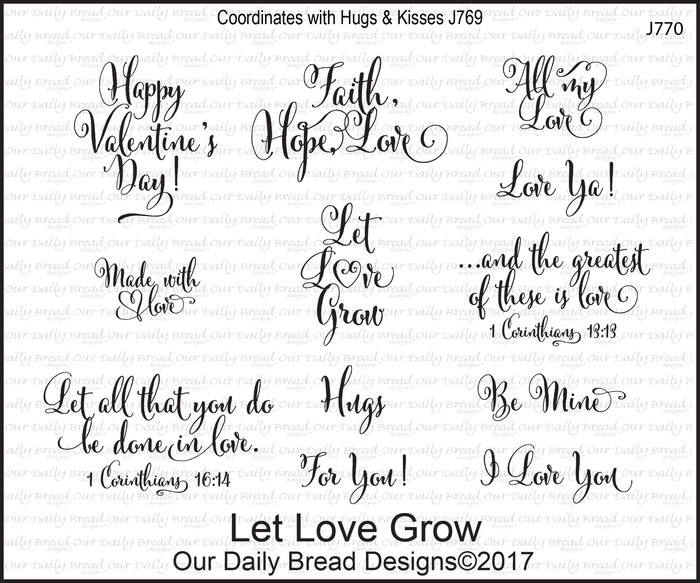 Coordinates with Hugs & Kisses J769
J770
Happy
Valentine's
Day!
Faith,
Hope, Love
All my
Love
Love Ya!
Made with
love
Let
Love
Grow
...and the greatest
of these is love
1 Corinthians 13:13
Let all that you do
be done in love.
1 Corinthians 16:14
Hugs
For You!
Be Mine
I Love You
Let Love Grow
Our Daily Bread Designs©2017